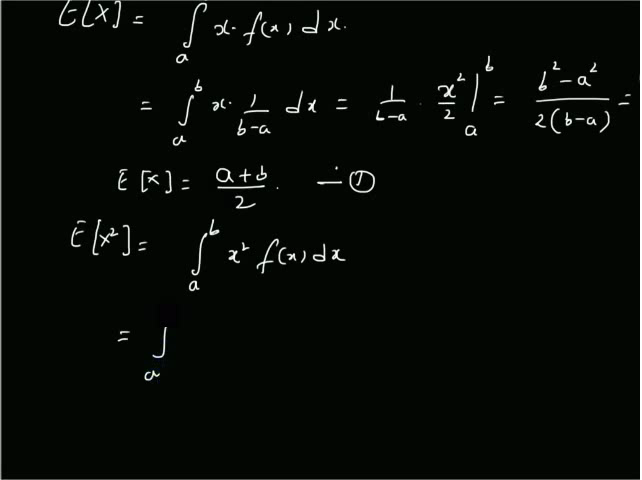 E[X] = ∫ₐ x. f(x) dx.
= ∫ₐᵇ x. 1/(b-a) dx = 1/(b-a) . x²/2 |ₐᵇ = (b²-a²)/(2(b-a)) =
E[X] = (a+b)/2. — ①
E[X²] = ∫ₐᵇ x² f(x) dx
= ∫ₐ